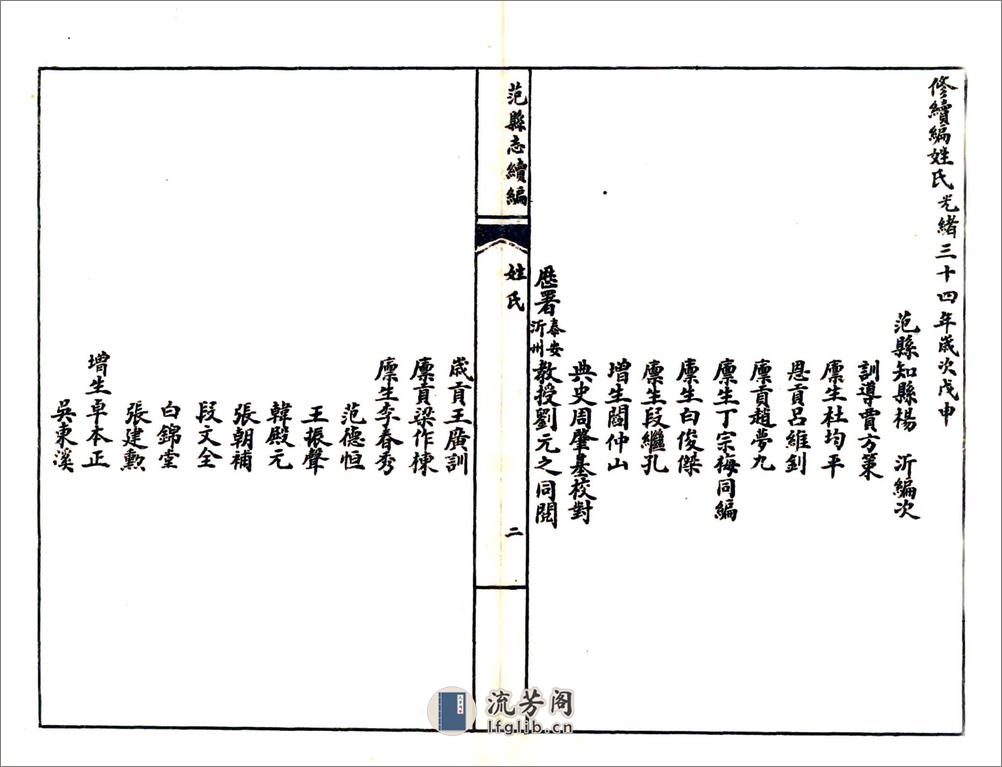 修續編姓氏光緒三十四年歲次戊申
范縣知縣楊 沂編次
訓導賈方策
廪生杜均平
恩貢呂維釗
廪貢趙夢九
廪生丁宗梅同編
廪生白俊傑
廪生段繼孔
增生閻仲山
典史周肇基校對
歷署泰安沂州教授劉元之同閱
范縣志續編
姓氏
二
歲貢王廣訓
廪貢梁作棟
廪生李春秀
范德恒
王振聲
韓殿元
張朝補
段文全
白錦堂
張建勳
增生卓本正
吳東溪
流芳阁
lfglib.cn